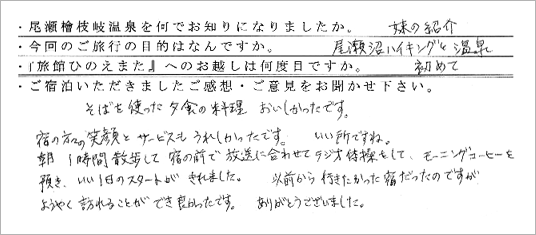 ・尾瀬檜枝岐温泉を何でお知りになりましたか。 妹の紹介
・今回のご旅行の目的はなんですか。 尾瀬沼ハイキングと温泉
・『旅館ひのえまた』へのお越しは何度目ですか。 初めて
・ご宿泊いただきましたご感想・ご意見をお聞かせ下さい。
そばを使った夕食の料理 おいしかったです。
宿の方々の笑顔とサービスもうれしかったです。 いい所ですね。
朝 1時間散歩して 宿の前で 放送に合わせてラジオ体操をして、モーニングコーヒーを
頂き、いい1日のスタートが きれました。 以前から行きたかった宿だったのですが
ようやく訪れることができ良かったです。 ありがとうございました。